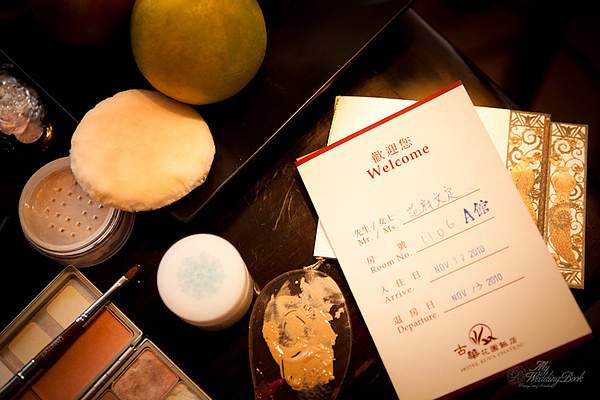 歡迎您
Welcome
先生/女士
Mr. / Ms. 范府文定
房 號
Room No. 1106 A館
入 住 日
Arrive. NOV 12 2010
退 房 日
Departure. NOV 13 2010
古華花園飯店
HOTEL KUVA CHATEAU
My
WeddingBook